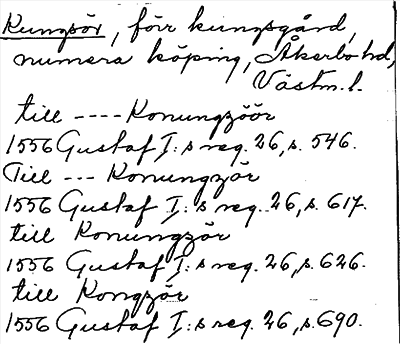 Kungsör, förr kungsgård,
numera köping, Åkerbo hd,
Västm. l.
till ---- Konungzöör
1556 Gustaf I:s reg. 26, s. 546.
Till --- Konungzör
1556 Gustaf I:s reg. 26, s. 617.
till Konungzör
1556 Gustaf I:s reg. 26, s. 626.
till Kongzör
1556 Gustaf I:s reg. 26, s. 690.